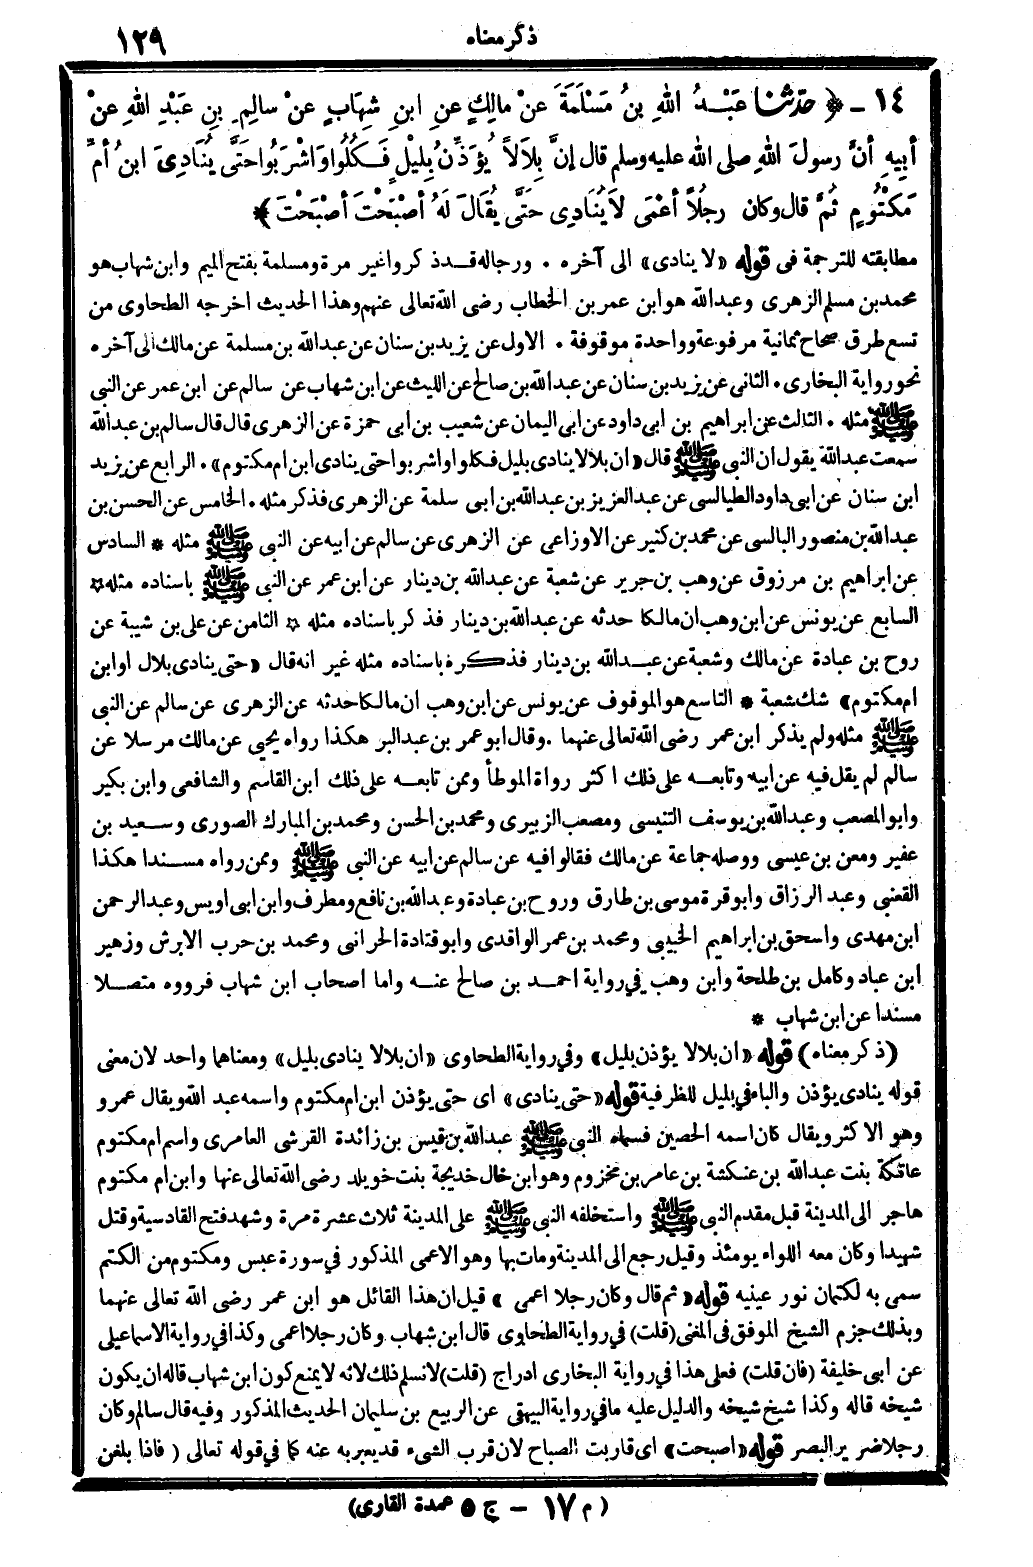 ذكر معناه ١٢٩
١٤ - ﴿ حدثنا عَبْدُ اللهِ بنُ مَسْلَمَةَ عَنْ مالِكٍ عنِ ابنِ شِهَابٍ عنْ سالِمِ بنِ عَبْدِ اللهِ عنْ
أبِيهِ أنَّ رسولَ اللهِ صلى الله عليه وسلم قال إنَّ بِلاَلاً يُؤَذِّنُ بِلَيْلٍ فَكُلُوا وَاشْرَبُوا حَتَّى يُنَادِىَ ابنُ أُمِّ
مَكْتُومٍ ثُمَّ قال وكان رجُلاً أعْمَى لاَ يُنَادِى حَتَّى يُقَالَ لَهُ أصْبَحْتَ أصْبَحْتَ ﴾
مطابقته للترجمة فى قوله «لا ينادى» الى آخره . ورجاله قد ذكروا غير مرة ومسلمة بفتح الميم وابن شهاب هو
محمد بن مسلم الزهرى وعبد الله هو ابن عمر بن الخطاب رضى الله تعالى عنهم وهذا الحديث اخرجه الطحاوى من
تسع طرق صحاح ثمانية مرفوعة وواحدة موقوفة . الاول عن يزيد بن سنان عن عبد الله بن مسلمة عن مالك الى آخره
نحو رواية البخارى . الثانى عن يزيد بن سنان عن عبد الله بن صالح عن الليث عن ابن شهاب عن سالم عن ابن عمر عن النبى
ﷺ مثله . الثالث عن ابراهيم بن ابى داود عن ابى اليمان عن شعيب بن ابى حمزة عن الزهرى قال قال سالم بن عبد الله
سمعت عبد الله يقول ان النبى ﷺ قال «ان بلالا ينادى بليل فكلوا واشربوا حتى ينادى ابن ام مكتوم» . الرابع عن يزيد
ابن سنان عن ابى داود الطيالسى عن عبد العزيز بن عبد الله بن ابى سلمة عن الزهرى فذكر مثله . الخامس عن الحسن بن
عبد الله بن منصور البالسى عن محمد بن كثير عن الاوزاعى عن الزهرى عن سالم عن ابيه عن النبى ﷺ مثله * السادس
عن ابراهيم بن مرزوق عن وهب بن جرير عن شعبة عن عبد الله بن دينار عن ابن عمر عن النبى ﷺ باسناده مثله *
السابع عن يونس عن ابن وهب ان مالكا حدثه عن عبد الله بن دينار فذكر باسناده مثله * الثامن عن على بن شيبة عن
روح بن عبادة عن مالك وشعبة عن عبد الله بن دينار فذكره باسناده مثله غير انه قال «حتى ينادى بلال او ابن
ام مكتوم» شك شعبة * التاسع هو الموقوف عن يونس عن ابن وهب ان مالكا حدثه عن الزهرى عن سالم عن النبى
ﷺ مثله ولم يذكر ابن عمر رضى الله تعالى عنهما . وقال ابو عمر بن عبد البر هكذا رواه يحيى عن مالك مرسلا عن
سالم لم يقل فيه عن ابيه وتابعه على ذلك اكثر رواة الموطأ وممن تابعه على ذلك ابن القاسم والشافعى وابن بكير
وابو المصعب وعبد الله بن يوسف التنيسى ومصعب الزبيرى ومحمد بن الحسن ومحمد بن المبارك الصورى وسعيد بن
عفير ومعن بن عيسى ووصله جماعة عن مالك فقالوا فيه عن سالم عن ابيه عن النبى ﷺ وممن رواه مسندا هكذا
القعنبى وعبد الرزاق وابو قرة موسى بن طارق وروح بن عبادة وعبد الله بن نافع ومطرف وابن ابى اويس وعبد الرحمن
ابن مهدى واسحق بن ابراهيم الحنينى ومحمد بن عمر الواقدى وابو قتادة الحرانى ومحمد بن حرب الابرش وزهير
ابن عباد وكامل بن طلحة وابن وهب فى رواية احمد بن صالح عنه واما اصحاب ابن شهاب فرووه متصلا
مسندا عن ابن شهاب *
(ذكر معناه) قوله «ان بلالا يؤذن بليل» وفى رواية الطحاوى «ان بلالا ينادى بليل» ومعناهما واحد لان معنى
قوله ينادى يؤذن والباء فى بليل للظرفية قوله «حتى ينادى» اى حتى يؤذن ابن ام مكتوم واسمه عبد الله ويقال عمرو
وهو الاكثر ويقال كان اسمه الحصين فسماه النبى ﷺ عبد الله بن قيس بن زائدة القرشى العامرى واسم ام مكتوم
عاتكة بنت عبد الله بن عنكشة بن عامر بن مخزوم وهو ابن خال خديجة بنت خويلد رضى الله تعالى عنها وابن ام مكتوم
هاجر الى المدينة قبل مقدم النبى ﷺ واستخلفه النبى ﷺ على المدينة ثلاث عشرة مرة وشهد فتح القادسية وقتل
شهيدا وكان معه اللواء يومئذ وقيل رجع الى المدينة ومات بها وهو الاعمى المذكور فى سورة عبس ومكتوم من الكتم
سمى به لكتمان نور عينيه قوله «ثم قال وكان رجلا اعمى» قيل ان هذا القائل هو ابن عمر رضى الله تعالى عنهما
وبذلك جزم الشيخ الموفق فى المغنى (قلت) فى رواية الطحاوى قال ابن شهاب وكان رجلا اعمى وكذا فى رواية الاسماعيلى
عن ابى خليفة (فان قلت) فعلى هذا فى رواية البخارى ادراج (قلت) لا نسلم ذلك لانه لا يمنع كون ابن شهاب قاله ان يكون
شيخه قاله وكذا شيخ شيخه والدليل عليه ما فى رواية البيهقى عن الربيع بن سليمان الحديث المذكور وفيه قال سالم وكان
رجلا ضرير البصر قوله «اصبحت» اى قاربت الصباح لان قرب الشىء قد يعبر به عنه كما فى قوله تعالى (فاذا بلغن
(م ١٧ - ج ٥ عمدة القارى)